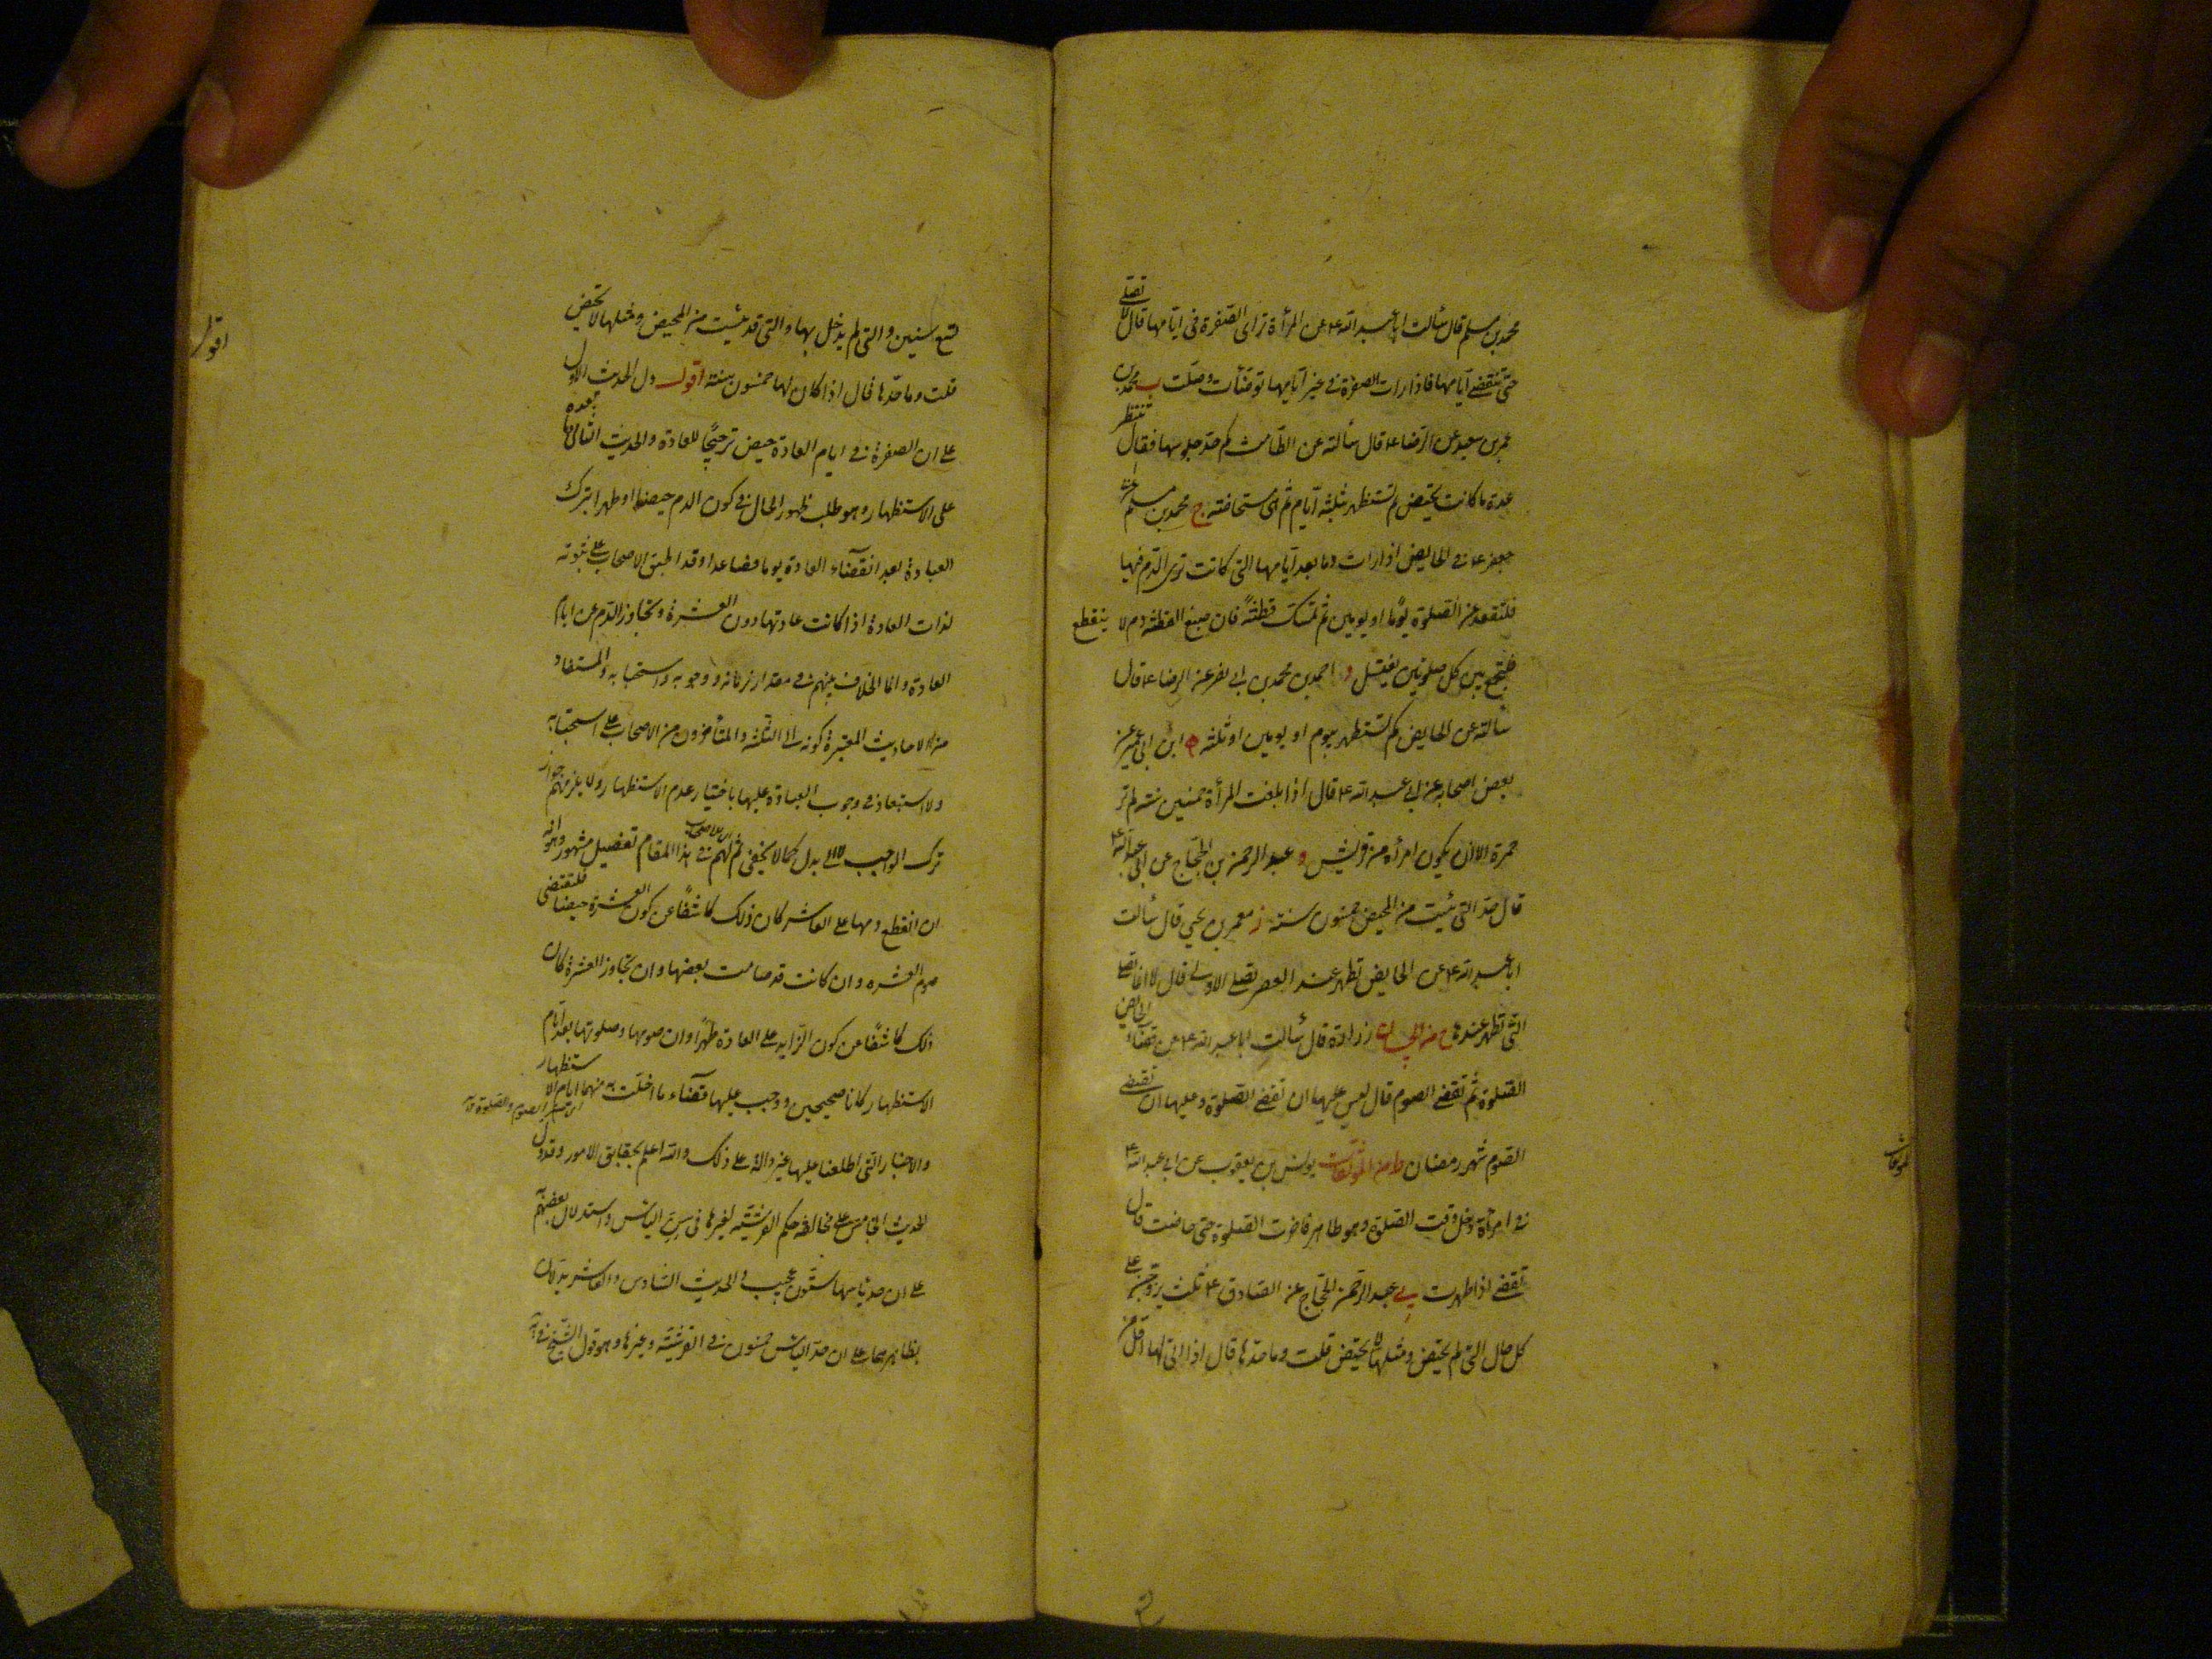 محمد بن مسلم قال سألت ابا عبد الله ع عن المرأة ترى الصفرة في ايامها قال لا تصلي
حتى تنقضي ايامها فاذا رات الصفرة في غير ايامها توضأت وصلت ب محمد بن
عمر بن سعيد عن الرضا ع قال سألته عن الطامث كم حد جلوسها فقال تنتظر
عدة ما كانت تحيض ثم تستظهر بثلثة ايام ثم هى مستحاضة ج محمد بن مسلم عن
جعفر ع في الحايض اذا رات دما بعد ايامها التي كانت ترى الدم فيها
فلتقعد عن الصلوة يوما او يومين ثم تمسك قطنة فان صبغ القطنة دم لا ينقطع
فلتجمع بين كل صلوتين بغسل د احمد بن محمد بن ابي نصر عن الرضا ع قال
سألته عن الحايض كم تستظهر بيوم او يومين او ثلثة ه ابن ابي عمير عن
بعض اصحابه عن ابي عبد الله ع قال اذا بلغت المرأة خمسين سنة لم تر
حمرة الا ان يكون امرأة من قريش و عبد الرحمن بن الحجاج عن ابي عبد الله ع
قال حد التي يئست من المحيض خمسون سنة ز معمر بن يحيى قال سألت
ابا عبد الله ع عن الحايض تطهر عند العصر تصلي الاولى قال لا انما تصلي
التي تطهر عندها ح من الحسان زرارة قال سألت ابا عبد الله ع عن قضاء الحايض
الصلوة ثم تقضي الصوم قال ليس عليها ان تقضي الصلوة وعليها ان تقضي
الصوم شهر رمضان ط من الموثقات يونس بن يعقوب عن ابي عبد الله ع
في امرأة دخل وقت الصلوة وهو طاهر فاخرت الصلوة حتى حاضت قال
تقضي اذا طهرت ى عبد الرحمن الحجاج عن الصادق ع ثلث يتزوجن على
كل حال التي لم تحيض ومثلها لا تحيض قلت وما حدها قال اذا اتى لها اقل من
الموثقات
تسع سنين والتي لم يدخل بها والتي قد يئست من المحيض ومثلها لا تحيض
قلت وما حدها قال اذا كان لها خمسون سنة اقول دل الحديث الاول
على ان الصفرة في ايام العادة حيض ترجيحا للعادة والحديث الثاني وما بعده
على الاستظهار وهو طلب ظهور الحال في كون الدم حيضا او طهرا بترك
العبادة بعد انقضاء العادة يوما فصاعدا وقد اطبق الاصحاب على ثبوته
لذات العادة اذا كانت عادتها دون العشرة وتجاوز الدم عن ايام
العادة وانما الخلاف بينهم في مقدار زمانه ووجوبه واستحبابه والمستفاد
من الاحاديث المعتبرة كونه الى الثلثة والمتأخرون من الاصحاب على استحبابه
ولا استبعاد في وجوب العبادة عليها باختيار عدم الاستظهار ولا يلزمهم جواز
ترك الواجب لا الى بدل كما لا يخفى ثم لهم في هذا المقام تفصيل مشهور وهو انه
ان انقطع دمها على العاشر كان ذلك كاشفا عن كون العشرة حيضا فلتقضي
صوم العشره وان كانت قد صامت بعضها وان تجاوز العشرة كان
ذلك كاشفا عن كون الزايد على العادة طهرا وان صومها وصلوتها بعد ايام
الاستظهار كانا صحيحين ووجب عليها قضاء ما اخلت به منهما ايام الاستظهار
والاخبار التي اطلعنا عليها غير دالة على ذلك والله اعلم بحقايق الامور وقد دل
الحديث الخامس على مخالفة حكم القرشية لغيرها في سن اليأس واستدلال بعضهم
على ان حد يأسها ستون عجيب والحديث السادس والعاشر يدلان
بظاهرهما على ان حد اليأس خمسون في القرشية وغيرها وهو قول الشيخ في
اقول